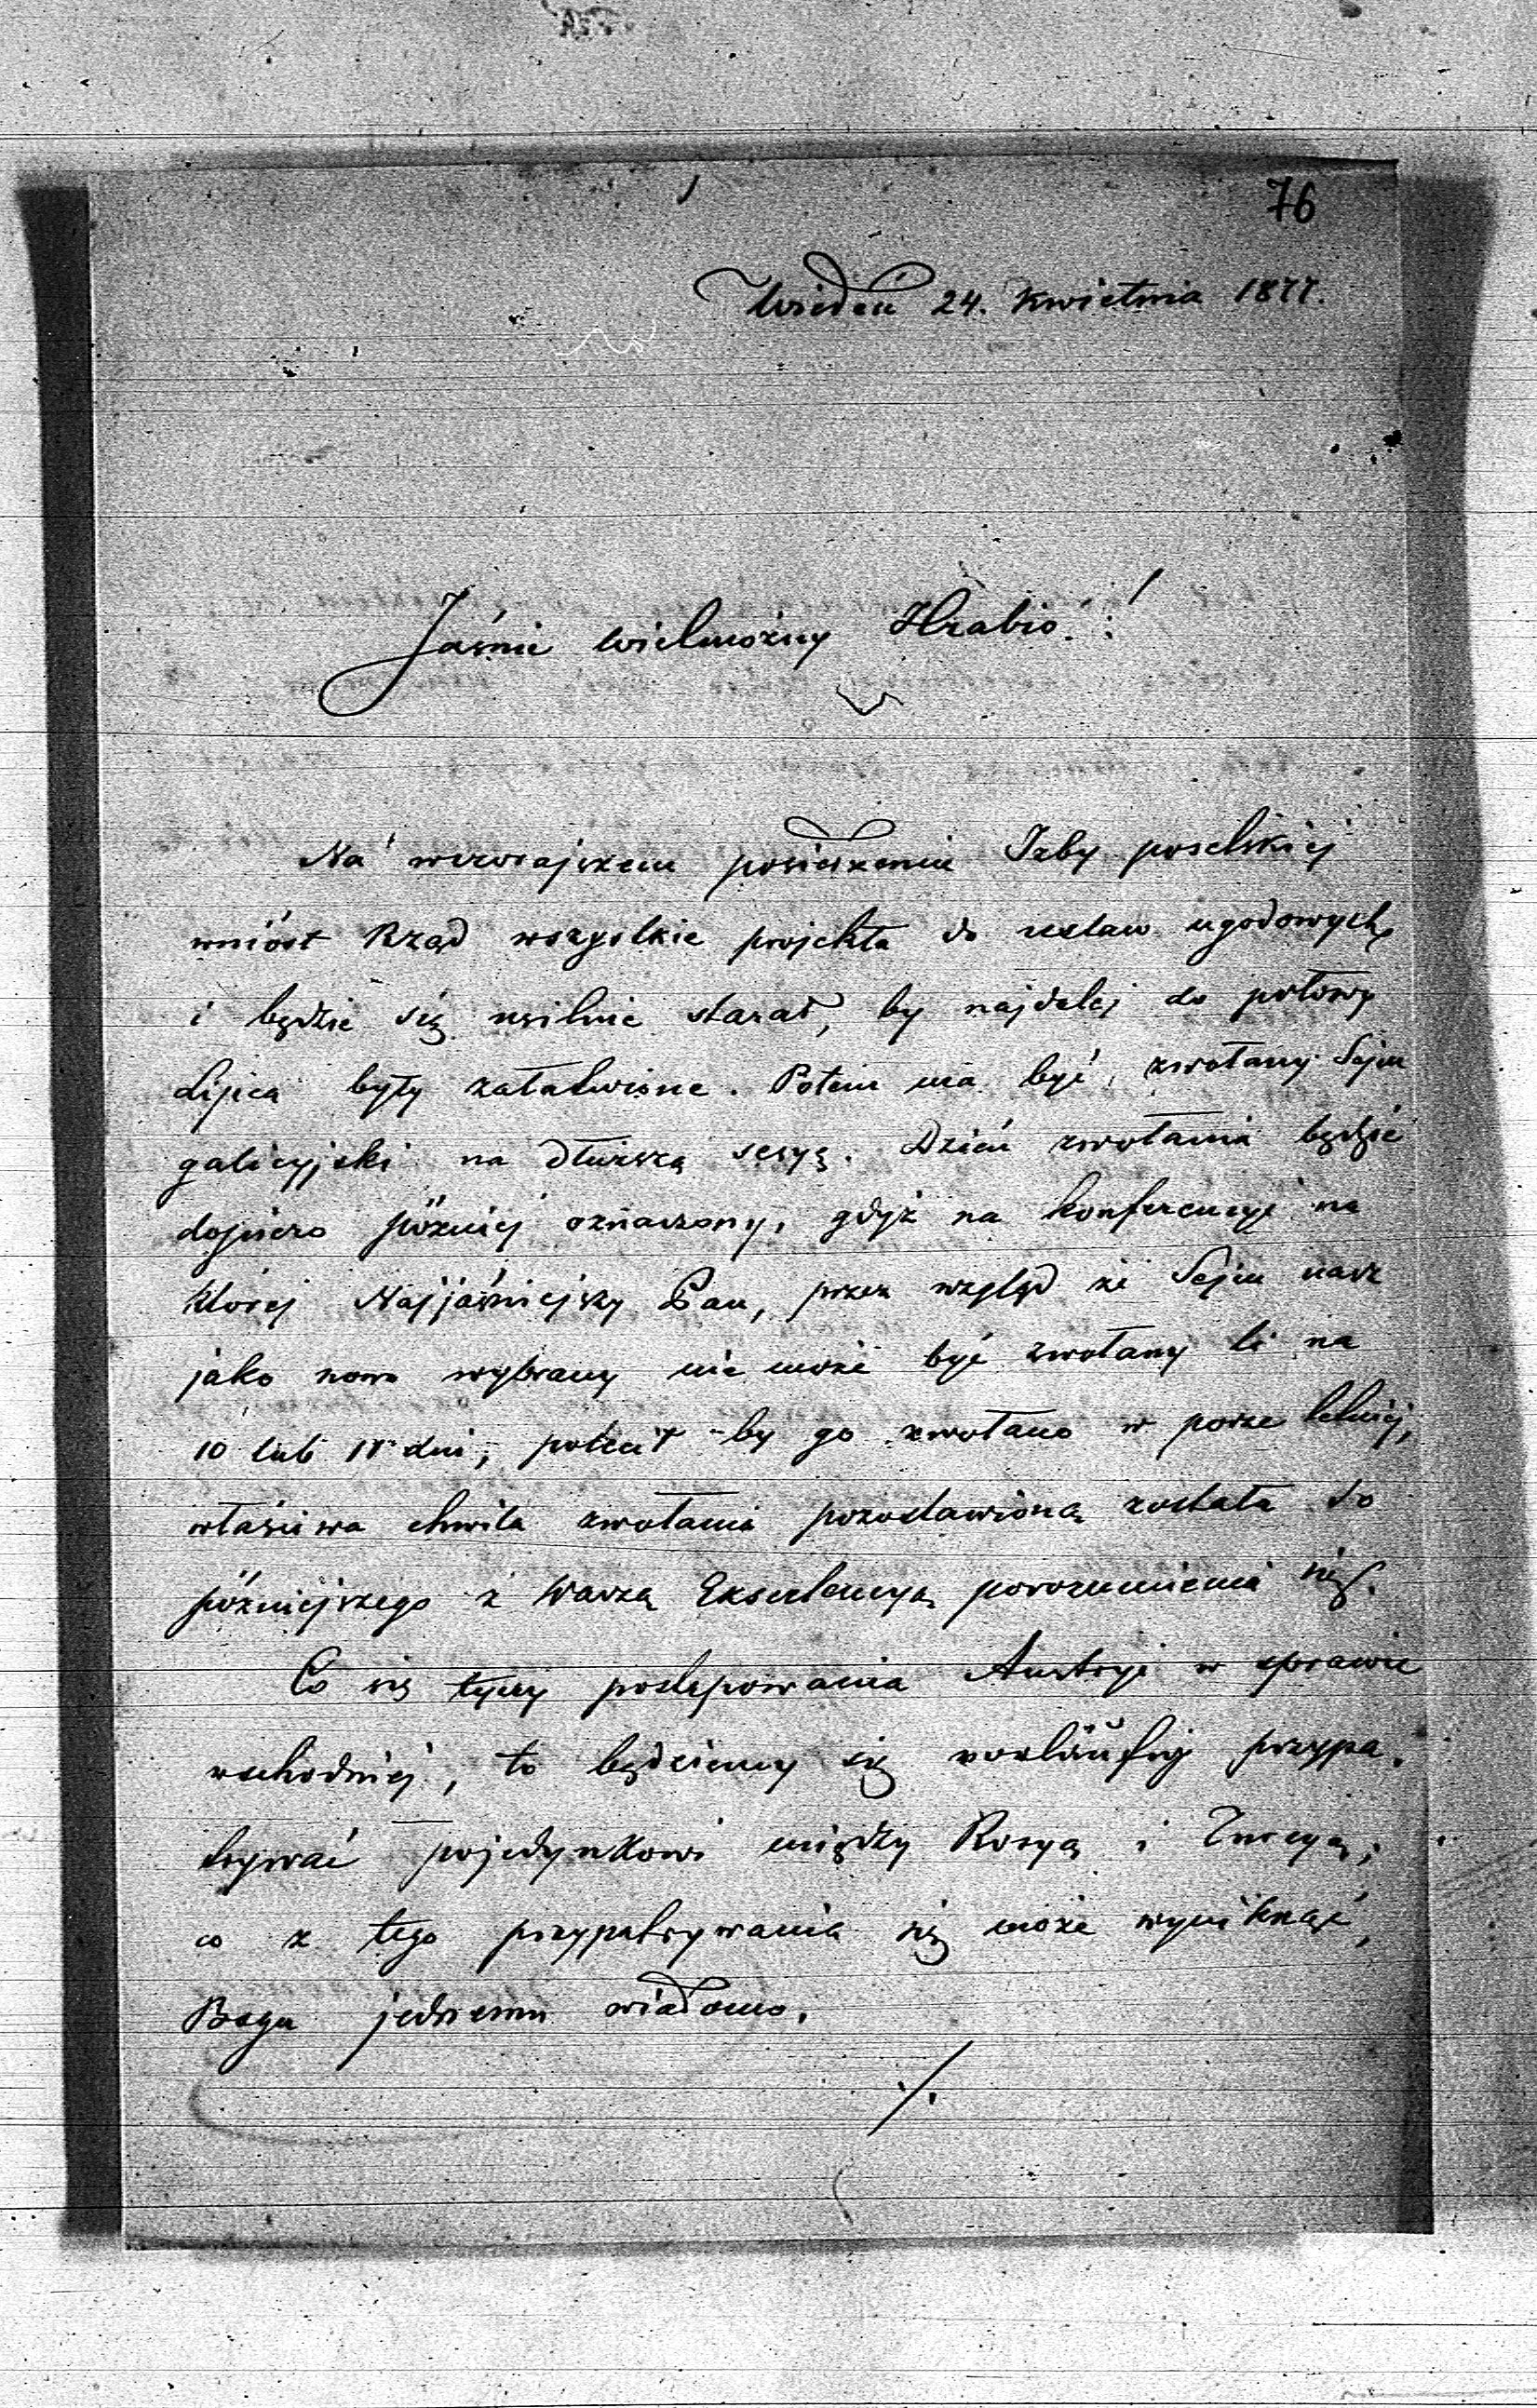 76
Wiedeń 24. Kwietnia 1877.
Jaśnie Wielmożny Hrabio!
Na wczorajszem posiedzeniu Izby poselskiej
wniósł Rząd wszystkie projekta do ustaw ugodowych,
i będzie się usilnie starał, by najdalej do połowy
Lipca były załatwione. Potem ma być zwołany Sejm
galicyjski na dłuższą sesyą. Dzień zwołania będzie
dopiero później oznaczony, gdyż na konferencyi na
której Najjaśniejszy Pan, przez wzgląd że Sejm nasz
jako nowo wybrany nie może być zwołany li na
10 lub 15 dni, polecił by go zwołano w porze letniej,
właściwa chwila zwołania pozostawioną została do
późniejszego z Waszą Excellencyą porozumienia się.
Co się tyczy postępowania Austryi w sprawie
wschodniej, to będziemy się vorläufig przypa-
trywać pojedynkowi między Rosyą i Turcyą;
co z tego przypatrywania się może wyniknąć,
Bogu jednemu wiadomo.
./.